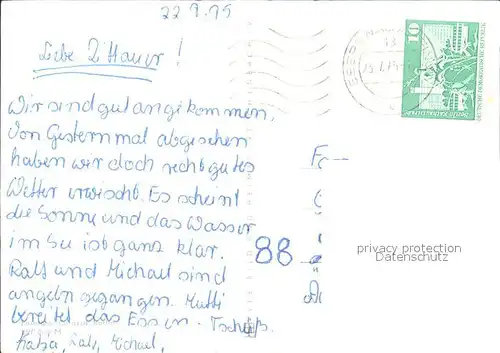 22.7.75
Liebe Zittauer!
Wir sind gut angekommen,
Von Gestern mal abgesehen
haben wir doch recht gutes
Wetter erwischt. Es scheint
die Sonne und das Wasser
im See ist ganz klar.
Ralf und Michael sind
angeln gegangen. Mutti
bereitet das Essen. Tschüß.
Katja, Ralf, Michael,
10
DEUTSCHE DEMOKRATISCHE REPUBLIK
88
privacy protection
Datenschutz